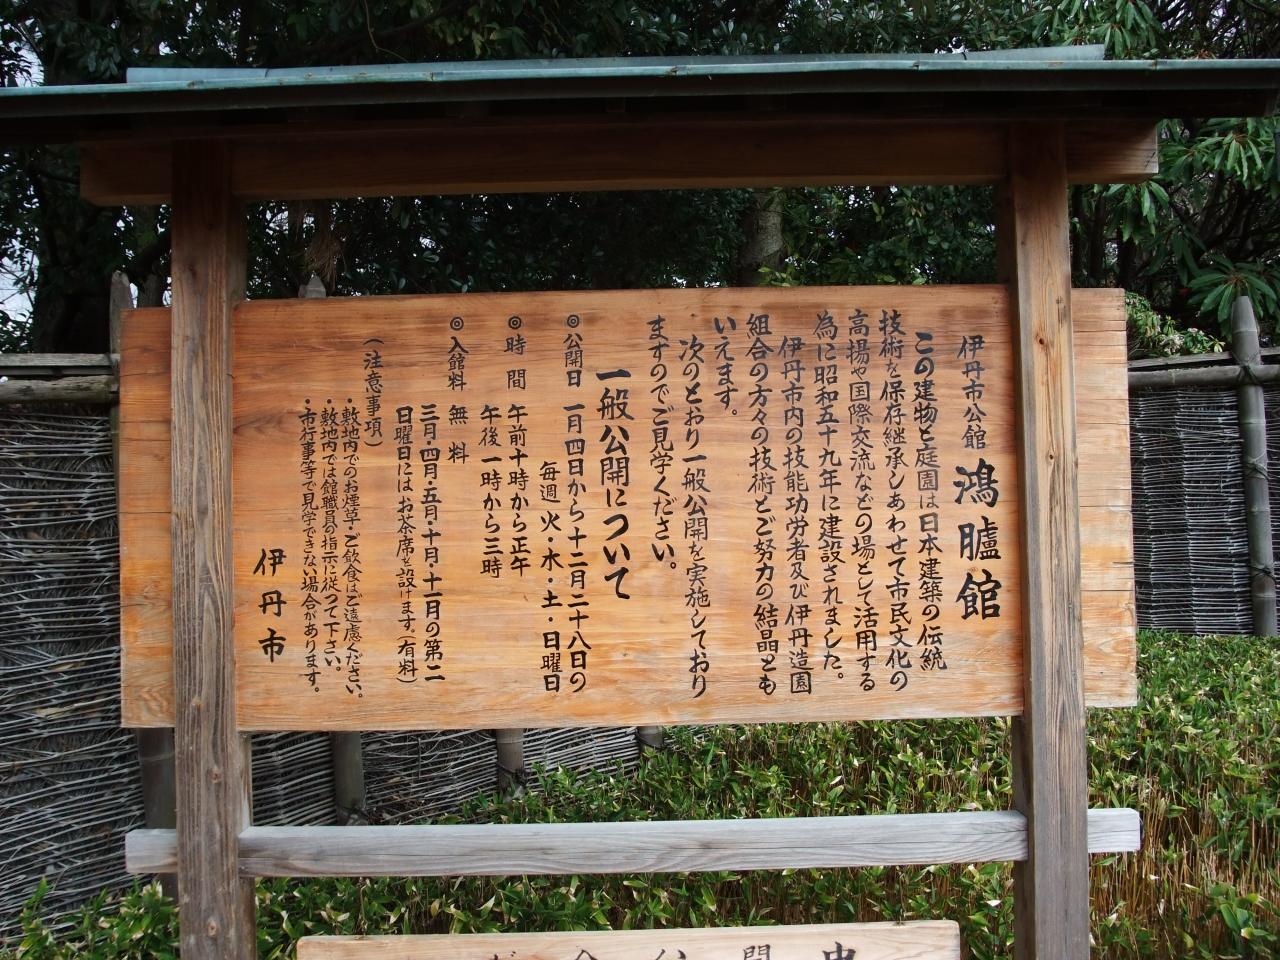 伊丹市公館 鴻臚館
この建物と庭園は日本建築の伝統
技術を保存継承しあわせて市民文化の
高揚や国際交流などの場として活用する
為に昭和五十九年に建設されました。
伊丹市内の技能功労者及び伊丹造園
組合の方々の技術とご努力の結晶とも
いえます。
次のとおり一般公開を実施しており
ますのでご見学ください。
一般公開について
◎公開日 一月四日から十二月二十八日の
毎週 火・水・土・日曜日
◎時間 午前十時から正午
午後一時から三時
◎入館料 無料
三月・四月・五月・十月・十一月の第二
日曜日にはお茶席を設けます。(有料)
(注意事項)
・敷地内でのお煙草・ご飲食はご遠慮ください。
・敷地内では館職員の指示に従って下さい。
・市行事等で見学できない場合があります。
伊丹市